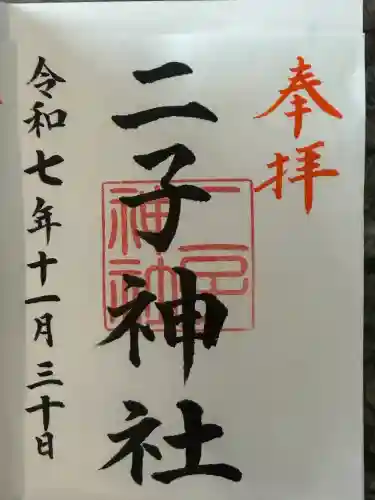 奉拝
二子神社
令和七年十一月三十日